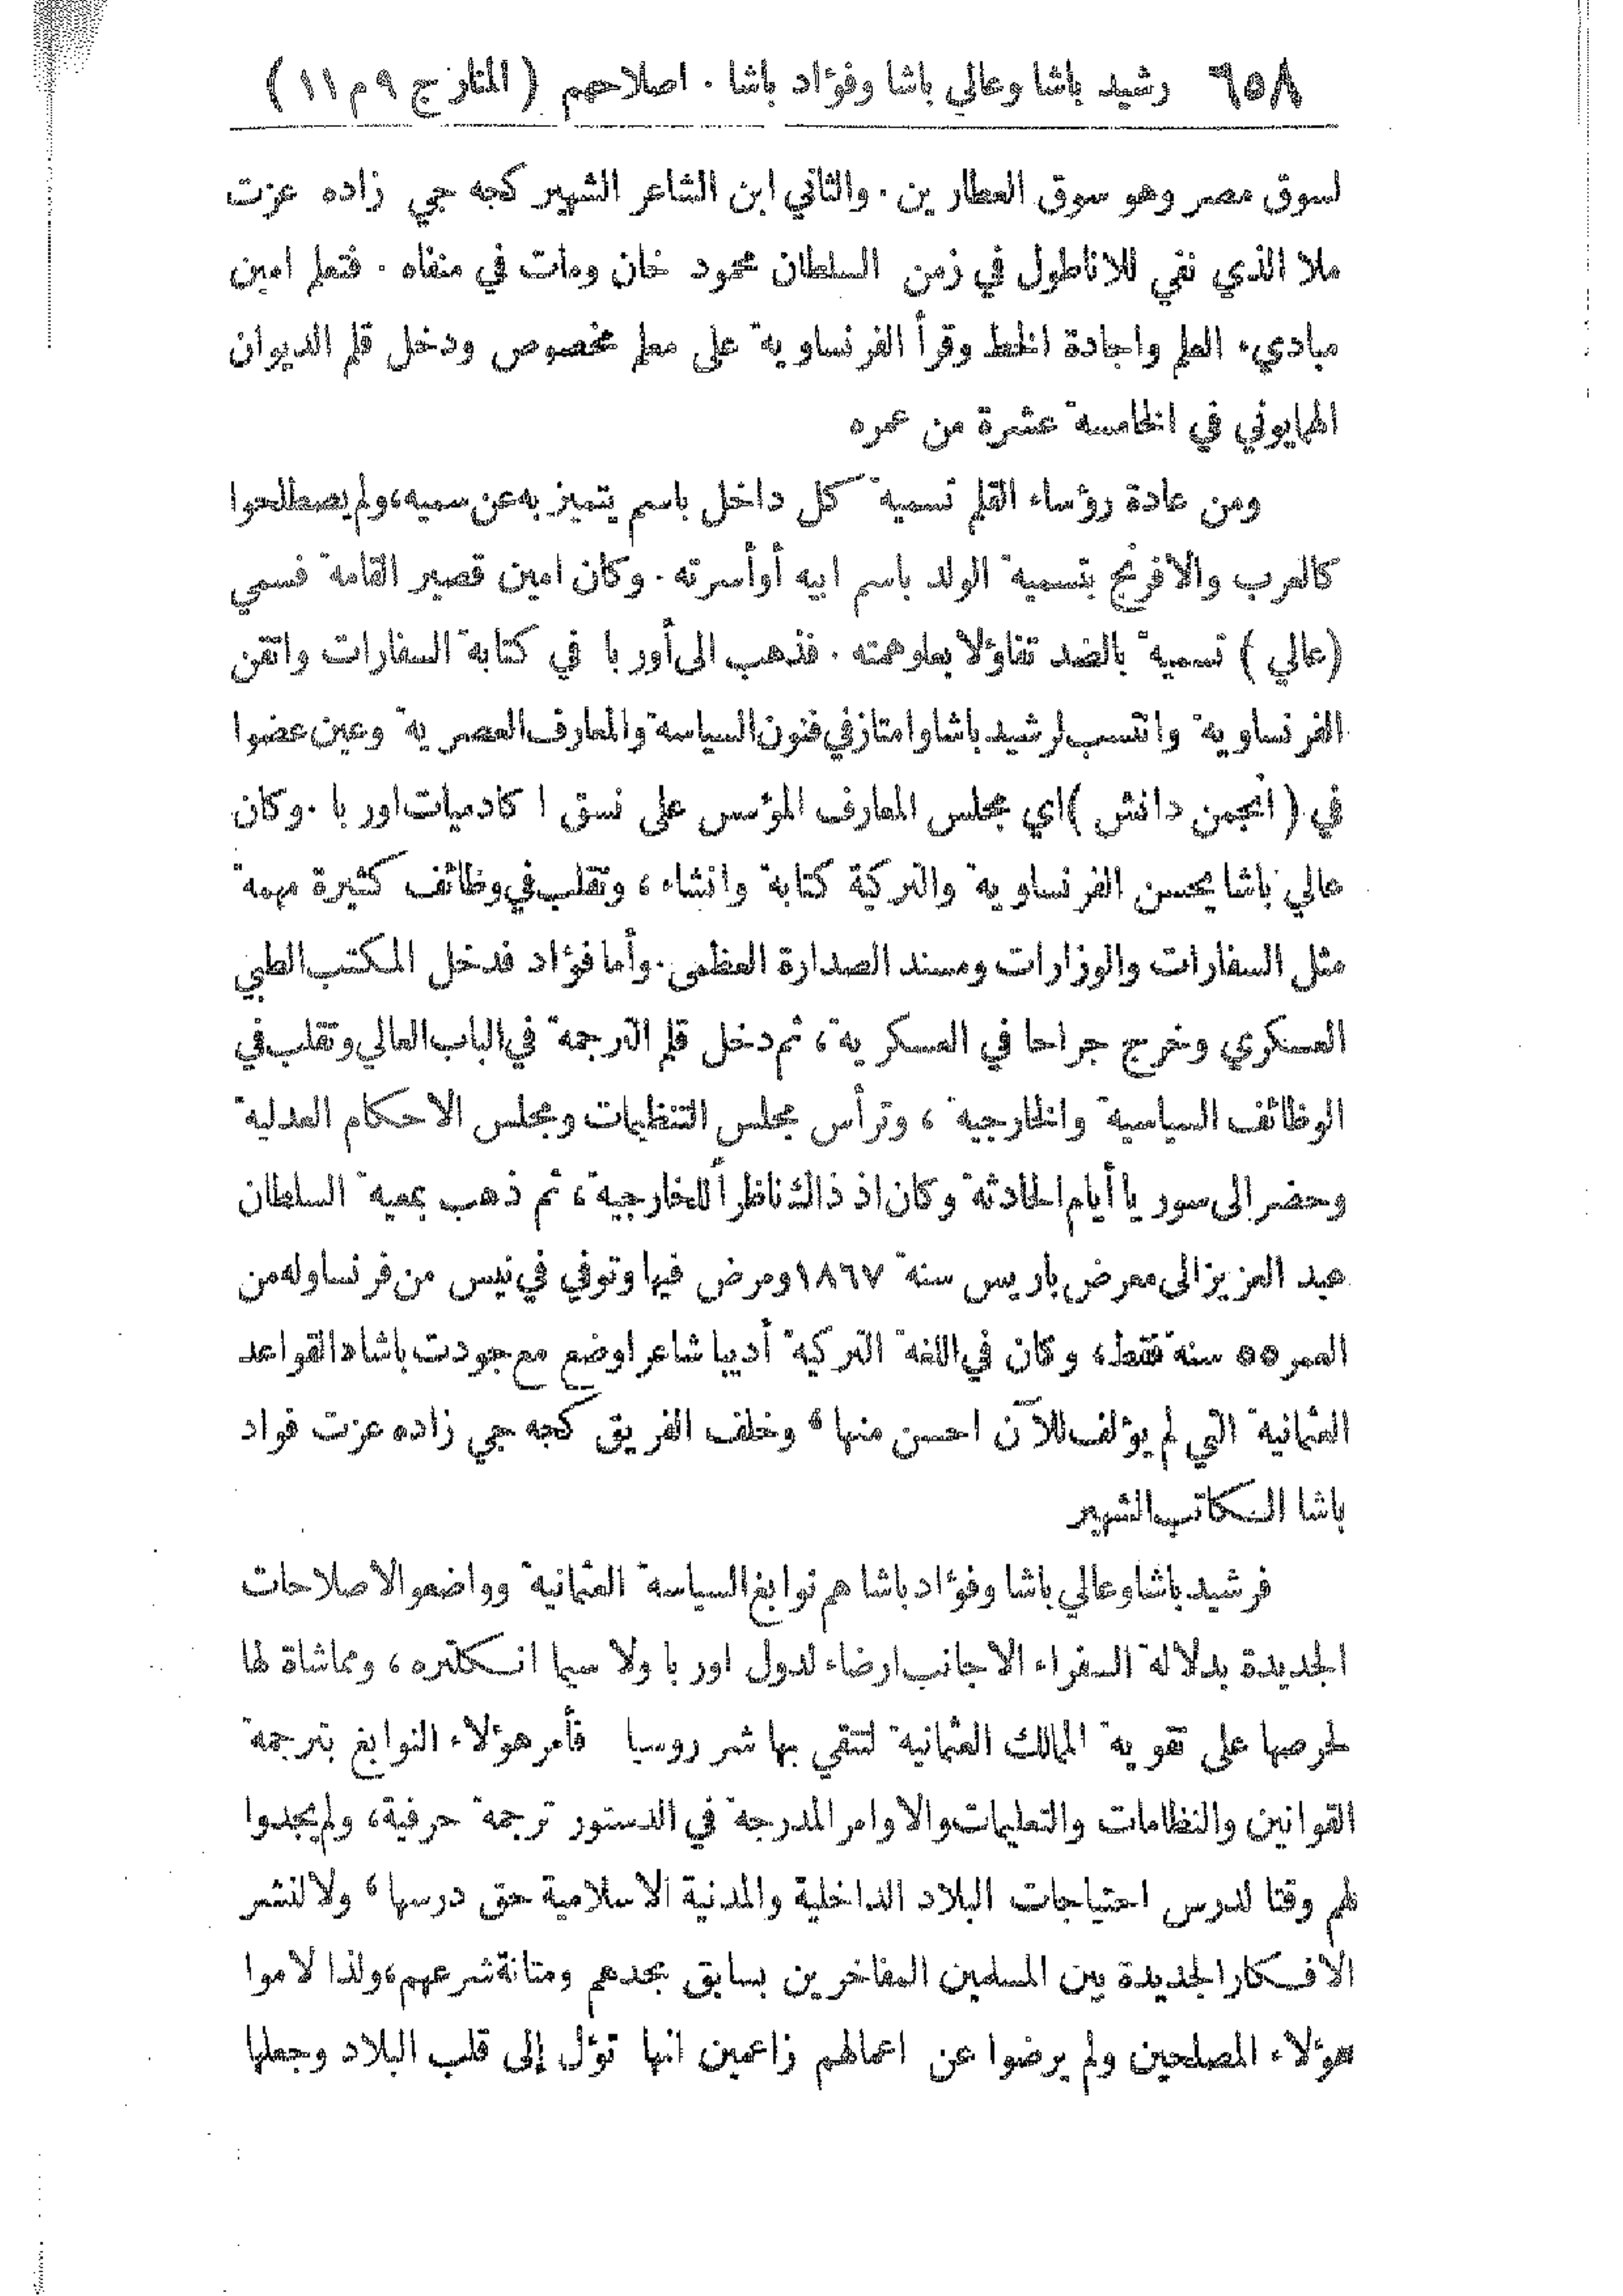 ٦٥٨ رشيد باشا وعالي باشا وفؤاد باشا . اصلاحهم ( المنار ج ٩ م ١١ )
لسوق مصر وهو سوق العطارين . والثاني ابن الشاعر الشهير كجه جي زاده عزت
ملا الذي نفي للاناطول في زمن السلطان محمود خان ومات في منفاه . فتعلم امين
مباديء العلم واجادة الخط وقرأ الفرنساوية على معلم مخصوص ودخل قلم الديوان
الهمايوني في الخامسة عشرة من عمره
ومن عادة رؤساء القلم تسمية كل داخل باسم يتميز به عن سميه، ولم يصطلحوا
كالعرب والافرنج بتسمية الولد باسم ابيه أو أسرته . وكان امين قصير القامة فسمي
(عالي ) تسمية بالضد تفاؤلا بعلو همته . فذهب الى أوربا في كتابة السفارات واتقن
الفرنساوية وانتسب لرشيد باشا وامتاز في فنون السياسة والمعارف العصرية وعين عضوا
في ( أنجمن دانش ) اي مجلس المعارف المؤسس على نسق اكادميات اوربا . وكان
عالي باشا يحسن الفرنساوية والتركية كتابة وانشاء ، وتقلب في وظائف كثيرة مهمة
مثل السفارات والوزارات ومسند الصدارة العظمى . وأما فؤاد فدخل المكتب الطبي
العسكري وخرج جراحا في العسكرية ، ثم دخل قلم الترجمة في الباب العالي وتقلب في
الوظائف السياسية والخارجية ، وترأس مجلس التنظيمات ومجلس الاحكام العدلية
وحضر الى سوريا أيام الحادثة وكان اذ ذاك ناظراً للخارجية ، ثم ذهب بمعية السلطان
عبد العزيز الى معرض باريس سنة ١٨٦٧ ومرض فيها وتوفي في نيس من فرنسا وله من
العمر ٥٥ سنة فقط ، وكان في اللغة التركية أديبا شاعرا وضع مع جودت باشا «القواعد
العثمانية التي لم يؤلف للآن احسن منها ، وخلف الفريق كجه جي زاده عزت فواد
باشا الكاتب الشهير
فرشيد باشا وعالي باشا وفؤاد باشا هم نوابغ السياسة العثمانية وواضعو الاصلاحات
الجديدة بدلالة السفراء الاجانب ارضاء لدول اوربا ولا سيما انكلتره ، ومماشاة لها
لحرصها على تقوية الممالك العثمانية لتتقي بها شر روسيا فأمر هؤلاء النوابغ بترجمة
القوانين والنظامات والتعليمات والاوامر المدرجة في الدستور ترجمة حرفية ، ولم يجدوا
لهم وقتا لدرس احتياجات البلاد الداخلية والمدنية الاسلامية حق درسها ، ولا لنشر
الافكار الجديدة بين المسلمين المفاخرين بسابق مجدهم ومتانة شرعهم ، ولذا لاموا
هؤلاء المصلحين ولم يرضوا عن اعمالهم زاعمين انها تؤل إلى قلب البلاد وجعلها